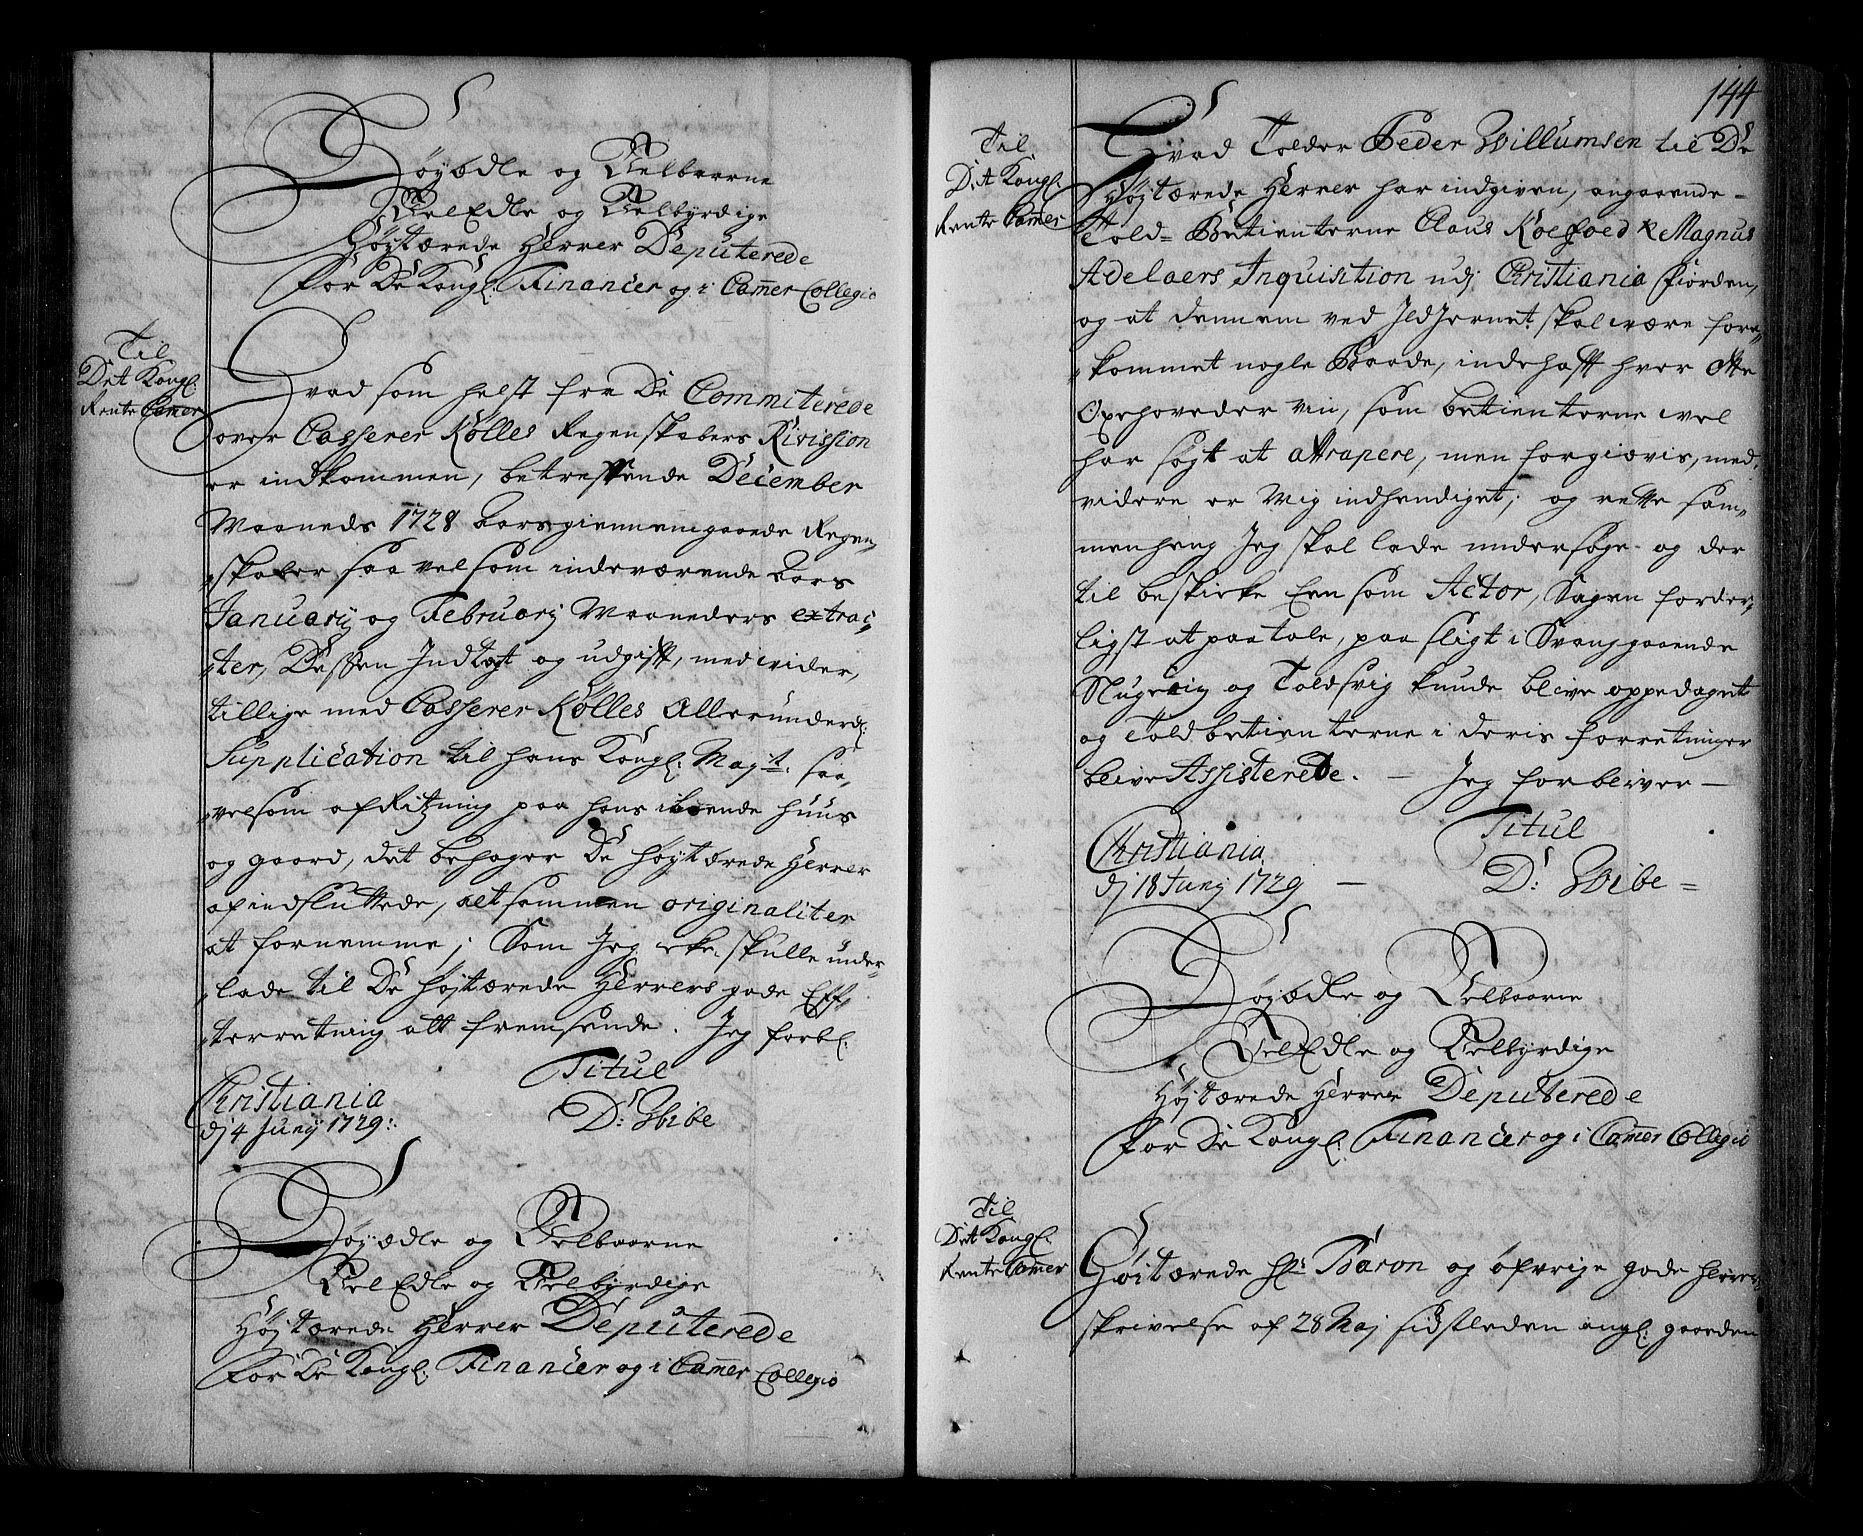 Høyædle og Velbaarne
VelEdle og Velbyrdige
Højtærede Herrer Deputerede
For De Kongl: Financer og i Cammer Collegio
Til
Det Kongl:
Rente Camer
Hvad som helst fra De Committerede
over Casserer Kølles Regenskabers Rivission
er indkommen, betreffende December
Maaneds 1728 Aars giennemgaaede Regen-
skaber saa vel som indeværende Aars
Januarij og Februarij Maaneders extrac-
ter, Dessen Indtegt og udgifft, med vider,
tillige med Casserer Kølles Allerunderd:
Supplication til hans Kongl: Mayt: saa-
velsom afRitzning paa hans iboende Huus
og gaard, det behager De højtærede Herrer
af indsluttede, altsammen originaliter
at fornemme; Som Jeg icke skulle under-
lade til De højtærede Herrers gode Eff-
terretning alt fremsende. Jeg forbl:
Titul
Christiania
dj 4 Junij 1729:
D: Wibe
Høyædle og Velbaarne
VelEdle og Velbyrdige
Højtærede Herrer Deputerede
For De Kongl: Financer og i Camer Collegio
144
Til
Det Kongl:
Rente Camer
Hvad Tolder Peder Willumsen til De
Højtærede Herrer har indgiven, angaaende
Told-Betienterne Claus Koefoed & Magnus
Adelaers Inquisition udj Christiania Fiorden,
og at dennem ved Jldjernet skal være fore-
kommet nogle Baade, indehafft hver otte
Oxehoveder Vin, som betienterne vel
har søgt at attrapere, men forgiævis, med
videre er Mig indhendiget; og rette sam-
menheng Jeg skal lade undersøge og der
til beskicke Een som Actor, Sagen forder-
ligst at paatale, paa sligt i Svang gaaende
Nugerig og Toldsvig kunde blive oppedaget
og Toldbetienterne i deris forretninger
blive Assisterede. — Jeg forbliver —
Titul
Christiania
dj 18 Junij 1729 —
D: Wibe =
Høyædle og Velbaarne
VelEdle og Velbyrdige
Højtærede Herrer Deputerede
For De Kongl: Financer og i Camer Collegio
Til
Det Kongl:
Rente Camer
Høitærede Hr: Baron og øfvrige gode Herrers
skrivelse af 28 Maj sidstleden angl: gaarden